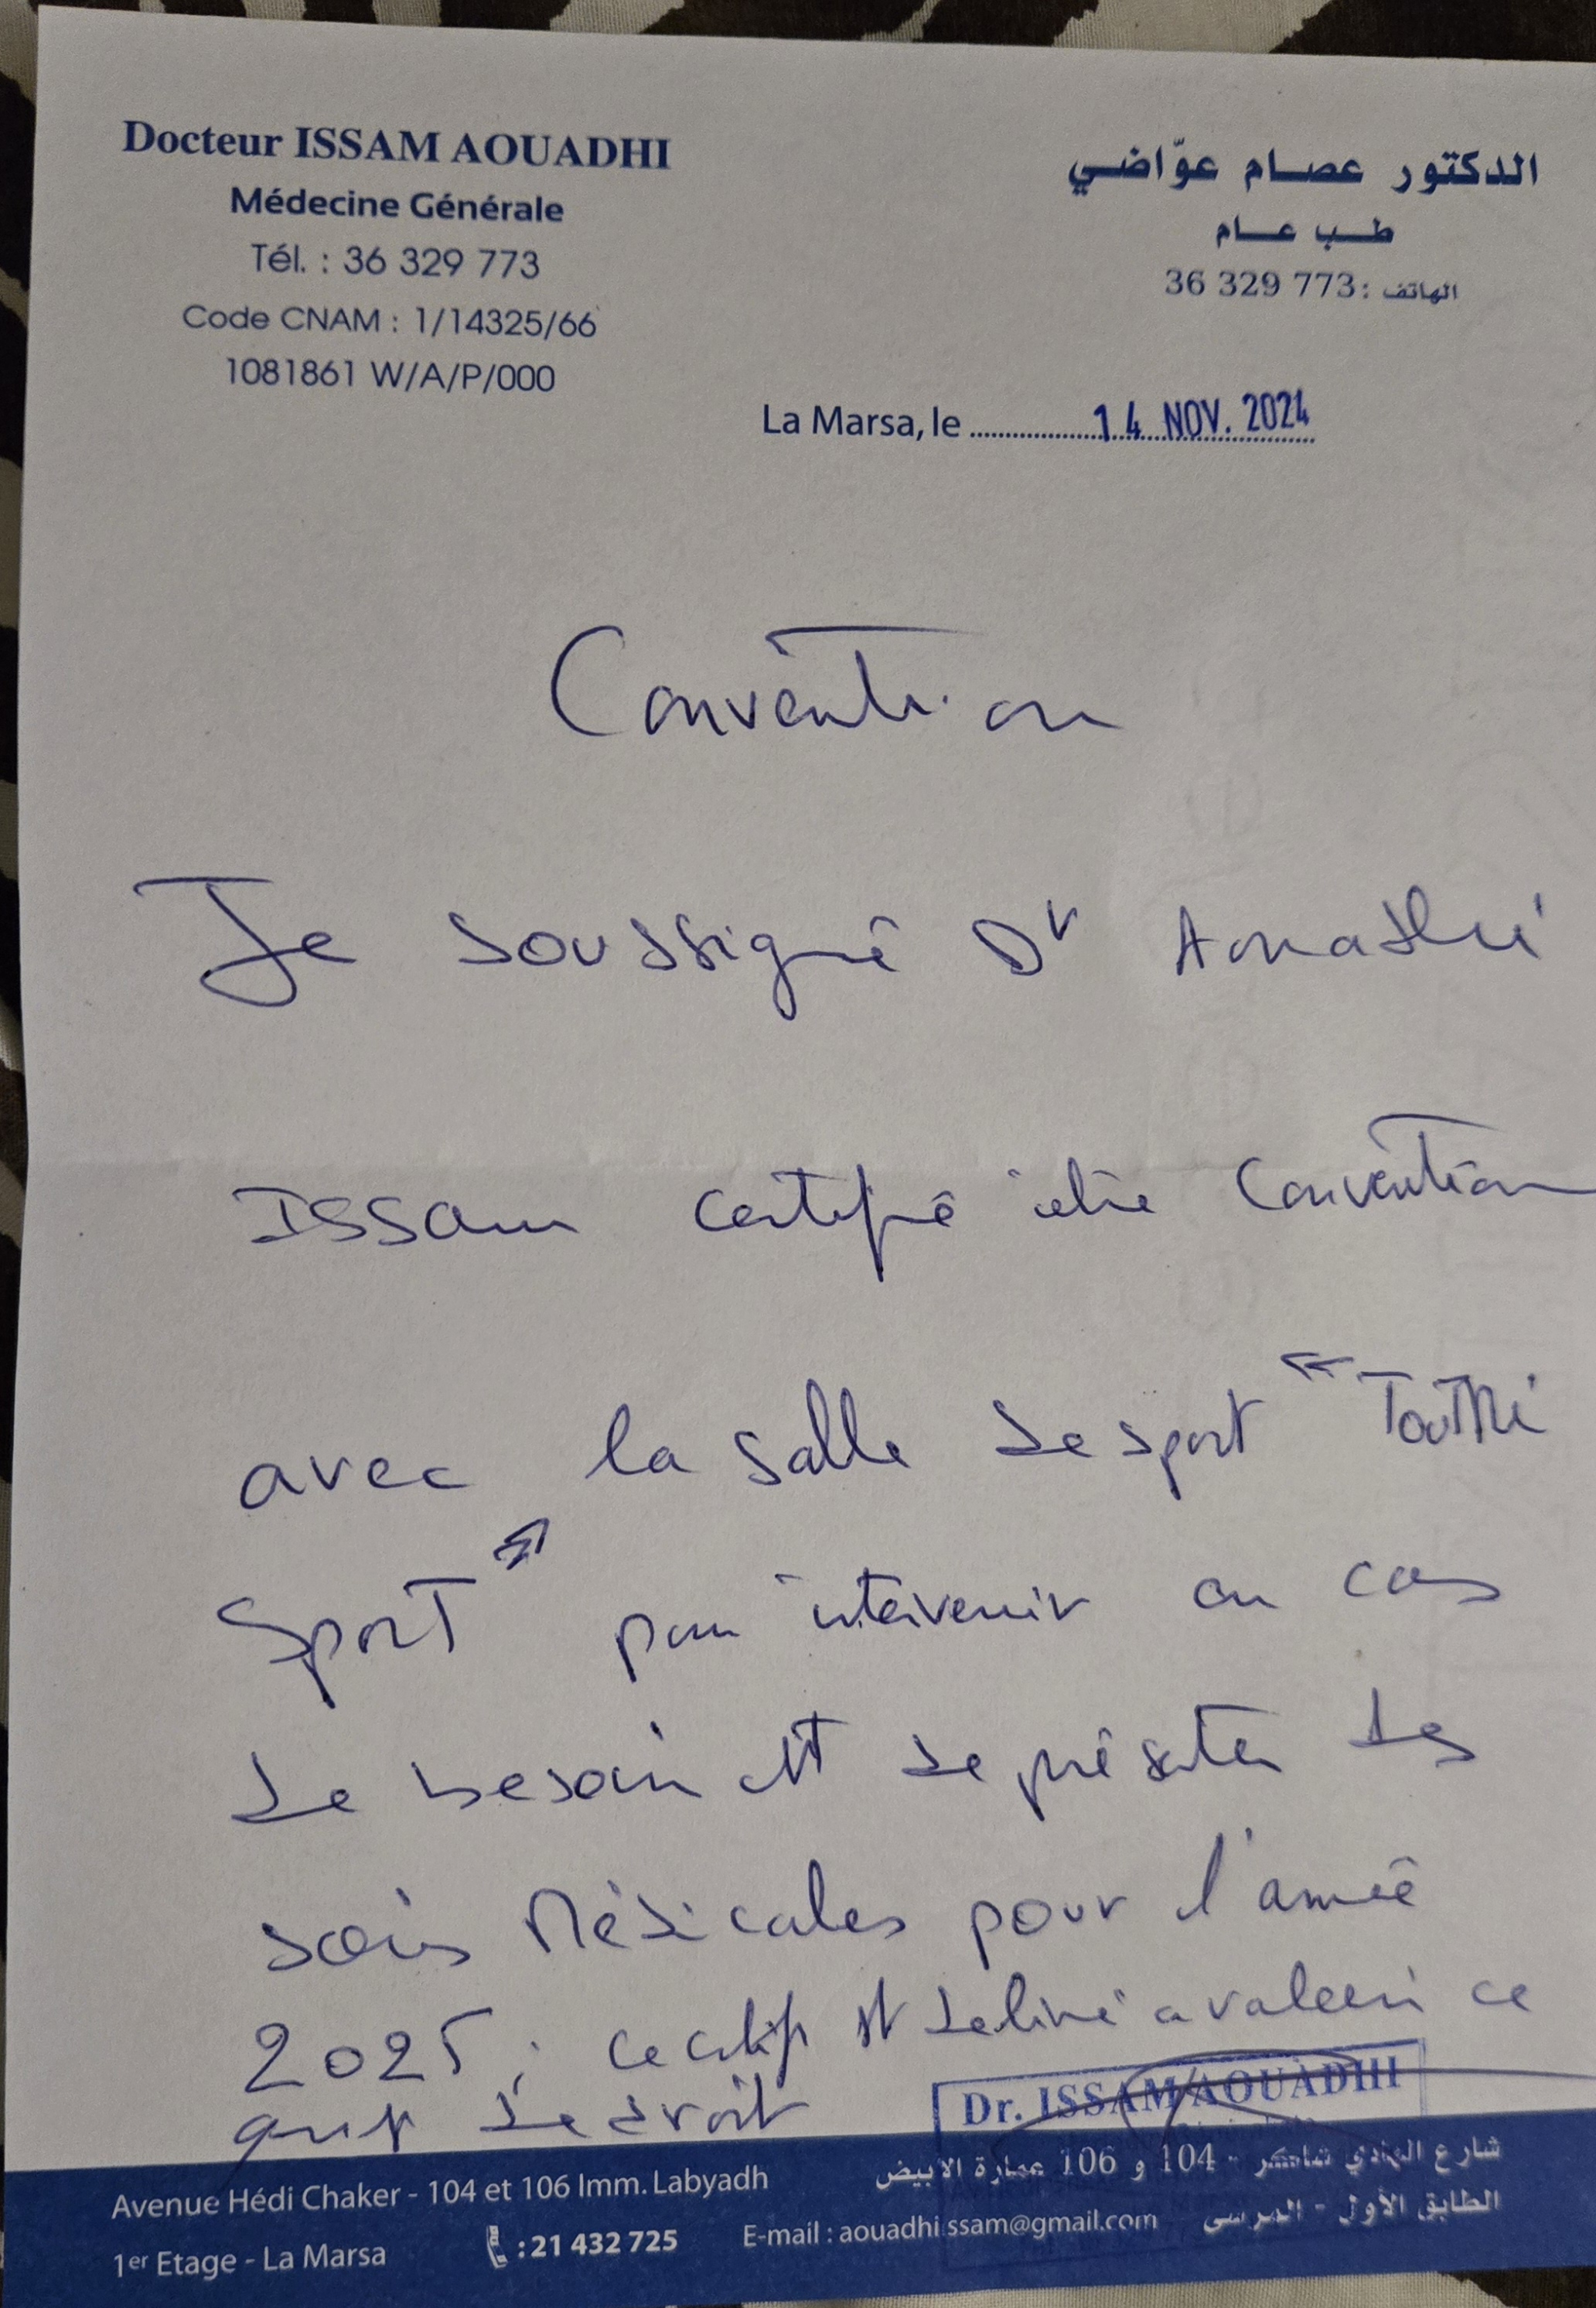 Docteur ISSAM AOUADHI
Médecine Générale
Tél. : 36 329 773
Code CNAM : 1/14325/66
1081861 W/A/P/000
الدكتور عصام عوّاضي
طب عام
الهاتف : 36 329 773
La Marsa, le 14 NOV. 2024
Convention
Je soussigné Dr Aouadhi
ISSam certifié être Convention
avec la salle de sport "
Sport" pour intervenir en cas
de besoin et de présenter des
soins Médicales pour l'année
2025 ; ce certif est délivré a valoir ce
que de droit
Dr. ISSAM AOUADHI
Avenue Hédi Chaker - 104 et 106 Imm. Labyadh
1er Etage - La Marsa
: 21 432 725
E-mail : aouadhi.issam@gmail.com
شارع الهادي شاكر - 104 و 106 عمارة الابيض
الطابق الأول - المرسى